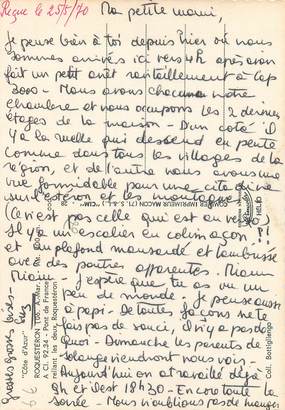 Reçue le 25/5/70
Ma petite mami,
Je pense bien à toi depuis hier où nous
sommes arrivés ici vers 4h après avoir
fait un petit arrêt ravitaillement à Cap
3000 - Nous avons chacun notre
chambre et nous occupons les 2 derniers
étages de la maison - D'un côté il
y a la ruelle qui descend en pente
comme dans tous les villages de la
région, et de l'autre nous avons une
vue formidable
sur l'esteron et les montagnes
(ce n'est pas celle qui est au verso)
Il y a un escalier en colimaçon
et un plafond mansardé et lambrissé
avec des poutres apparentes - Miam
Miam - J'espère que tu as vu un
peu de monde - Je pense aussi
à papi - De toutes façons ne te
fais pas de souci, il n'y a pas de
quoi - Dimanche les parents de
Solange viendront nous voir -
Aujourd'hui on a travaillé déjà
9h et il est 18h30 - Encore toute la
soirée - Nous n'oublions pas de manger
Grosses grosses bises -
"Côte d'Azur"
ROQUESTERON (06. A.-Mar.
A. C. U. 92.34 - Pont de France
reliant les deux Roquestéron
COMBIER IMPRIMEUR MACON
Coll. Bottiglengo